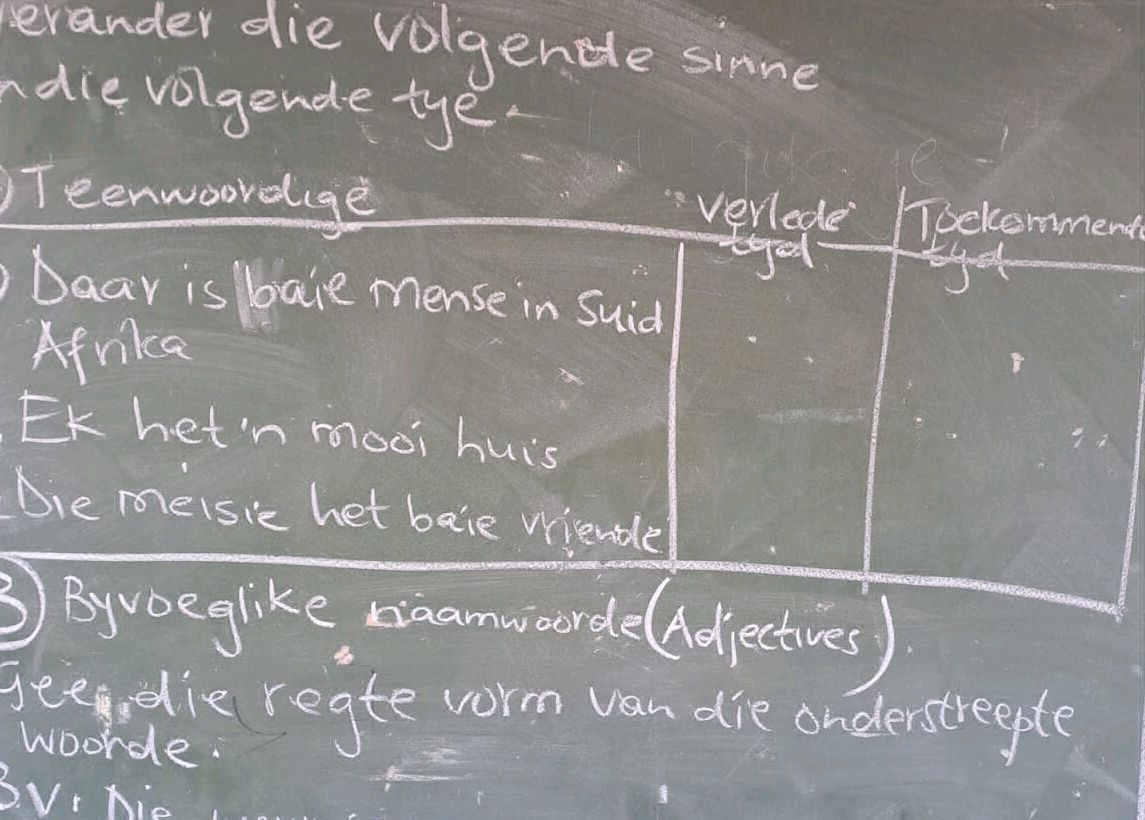 verander die volgende sinne
in die volgende tye.
Teenwoordige
verlede
tyd
Toekommende
tyd
Daar is baie mense in Suid
Afrika
Ek het 'n mooi huis
Die meisie het baie vriende
B) Byvoeglike naamwoorde (Adjectives)
Gee die regte vorm van die onderstreepte
woorde.
Bv: Die